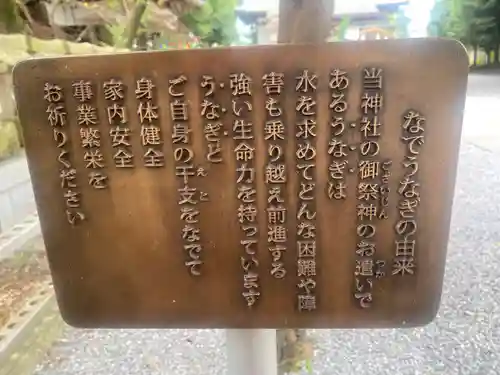 なでうなぎの由来
当神社の御祭神のお遣いで
あるうなぎは
水を求めてどんな困難や障
害も乗り越え前進する
強い生命力を持っています
うなぎと
ご自身の干支をなでて
身体健全
家内安全
事業繁栄を
お祈りください